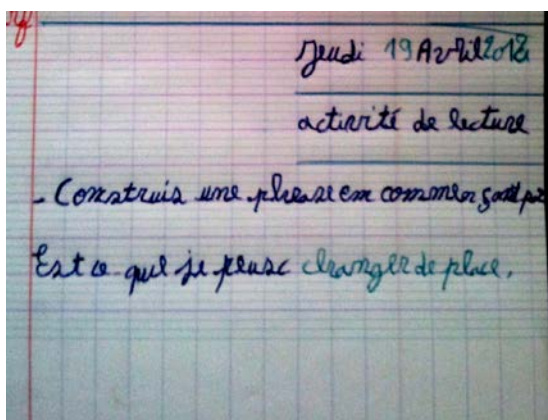 Jeudi 19 Avril 2018
activité de lecture
- Construis une phrase en commençant par
Est ce que je peusc changer de place.